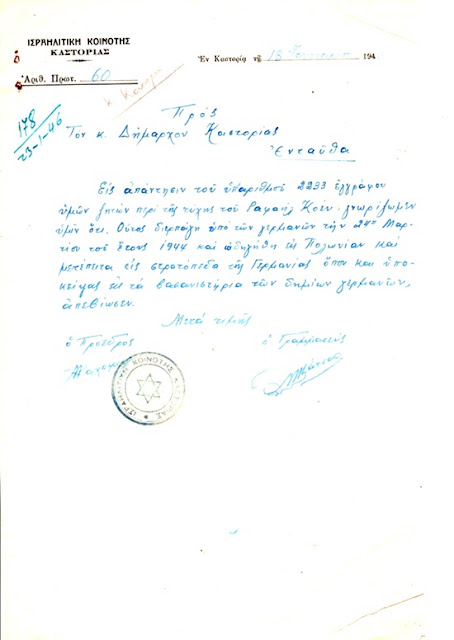 ΙΣΡΑΗΛΙΤΙΚΗ ΚΟΙΝΟΤΗΣ
ΚΑΣΤΟΡΙΑΣ
Ἀριθ. Πρωτ. 60
Ἐν Καστορίᾳ τῇ 15 194
178
23-1-46
Πρὸς
Τὸν κ. Δήμαρχον Καστορίας
Ἐνταῦθα
Εἰς ἀπάντησιν τοῦ ὑπαριθμὸ 2233 ἐγγράφου
ὑμῶν περὶ τῆς τύχης τοῦ Ραφαὴλ Κοέν, γνωρίζωμεν
ὑμῖν ὅτι. Οὗτος ὑπὸ τῶν γερμανῶν τὴν 24ην Μαρ-
τίου τοῦ ἔτους 1944 καὶ ὡδηγήθη εἰς Πολωνίαν καὶ
μετέπειτα εἰς στρατόπεδα τῆς Γερμανίας ὅπου καὶ ὑπο-
κείψας εἰς τὰ βασανιστήρια τῶν δημίων γερμανῶν,
ἀπεβίωσεν.
Μετὰ τιμῆς
ὁ Πρόεδρος ὁ Γραμματεὺς
ΙΣΡΑΗΛΙΤΙΚΗ ΚΟΙΝΟΤΗΣ ΚΑΣΤΟΡΙΑΣ